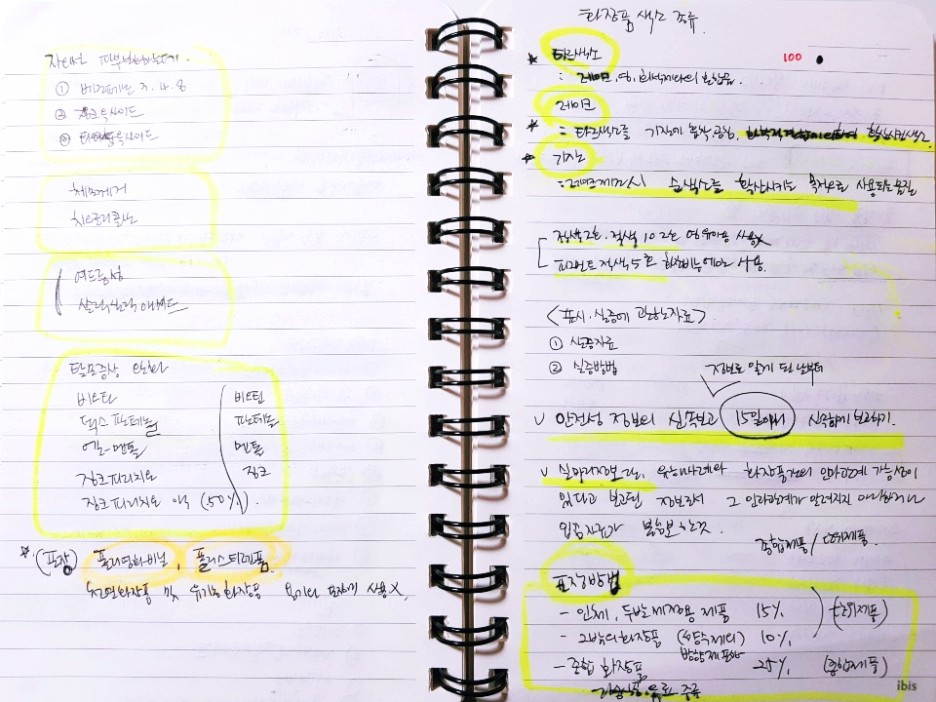 자외선
① 벤조페논 3. 4. 8
② 징크옥사이드
③ 티타늄옥사이드
체모제거
치오글리콜산
여드름성
살리실릭애씨드
탈모증상 완화
비오틴
덱스판테놀
엘-멘톨
징크피리치온
징크피리치온 액 (50%)
비오틴
판테놀
멘톨
징크
* (포장) 폴리염화비닐, 폴리스티렌폼
천연화장품 및 유기농화장품 용기와 포장에 사용X
화장품 색소 종류
100
* 타르색소
레이크
* : 타르색소를 기질에 흡착 공침,
* 기질
: 레이크제조시 순색소를 확산시키는 목적으로 사용되는 물질
등색 2호. 적색 102호 영유아용 사용X
피그먼트 적색 5호 화장비누에만 사용.
<표시. 실증에 관한 자료>
① 실증자료
② 실증방법
정보로 알게 된 날부터
v 안전성 정보의 신속보고 15일이내 신속하게 보고하기.
v 실마리정보란, 유해사례와 화장품간의 인과관계 가능성이
있다고 보고된 정보로서 그 인과관계가 알려지지 아니하거나
입증자료가 불충분한것
종합제품 / 단위제품.
포장방법
- 인체, 두발 세정용 제품 15%
- 그밖의 화장품 (방향제 포함) 10%
(단위제품)
- 종합 화장품 25% (종합제품)
ibis